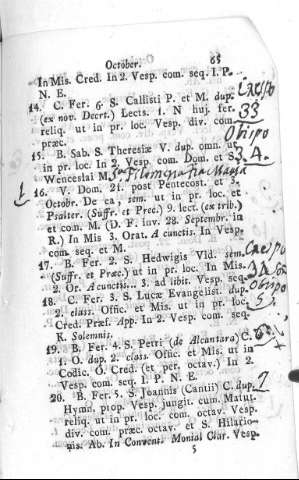 October. 65
In Mis. Cred. In 2. Vesp. com. seq. I. P.
N. E.
14. C. Fer. 6. S. Callisti P. et M. dup.
(ex nov. Decrt.) Lects. 1. N huj. fer.
reliq. ut in pr. loc. Vesp. div. com.
præc.
Crespo
33
Obispo
15. B. Sab. S. Theresiæ V. dup. omn. ut
in pr. loc. In 2. Vesp. com. Dom. et S.
34.
Wenceslai M.
16. V. Dom. 21. post Pentecost. et 3.
Octobr. De ea, sem. ut in pr. loc. et
Psalter. (Suffr. et Prec.) 9. lect. (ex trib.)
et com. M. (D. F. inv. 28. Septembr. in
R.) In Mis 3. Orat. A cunctis. In Vesp.
com. seq. et M.
Crespo
17. B. Fer. 2. S. Hedwigis Vid. sem.
(Suffr. et Præc.) ut in pr. loc. In Mis.
2. Or. A cunctis... 3. ad libit. Vesp. seq.
Obispo
18. C. Fer. 3. S. Lucæ Evangelist. dup.
5
2. class. Offic. et Mis. ut in pr. loc.
Cred. Præf. App. In 2. Vesp. com. seq.
K. Solemnis.
19. B. Fer. 4. S. Petri (de Alcantara) C.
1. O. dup. 2. class. Offic. et Mis. ut in
Codic. O. Cred. (et per. octav.) In 2.
Vesp. com. seq. I. P. N. E.
20. B. Fer. 5. S. Joannis (Cantii) C. dup.
Hymn. prop. Vesp. jungit. cum. Matut.
reliq. ut in pr. loc. com. octav. Vesp.
div. com. præc. octav. et S. Hilario-
nis. Ab. In Convent. Monial Clar. Vesp.
5